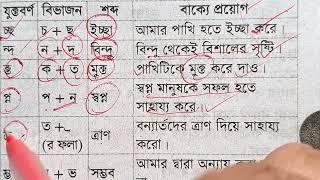 যুক্তবর্ণ বিভাজন শব্দ বাক্যে প্রয়োগ
চ্ছ চ + ছ ইচ্ছা আমার পাখি হতে ইচ্ছা করে।
ন্দ ন + দ বিন্দু বিন্দু থেকেই বিশালের সৃষ্টি।
ক্ত ক + ত মুক্ত পাখিটিকে মুক্ত করে দাও।
প্ন প + ন স্বপ্ন স্বপ্ন মানুষকে সফল হতে
সাহায্য করে।
ত + ্র ত্রাণ বন্যার্তদের ত্রাণ দিয়ে সাহায্য
(র ফলা) করো।
আমার দ্বারা অন্যায়
ম্ভ + ভ সম্ভব